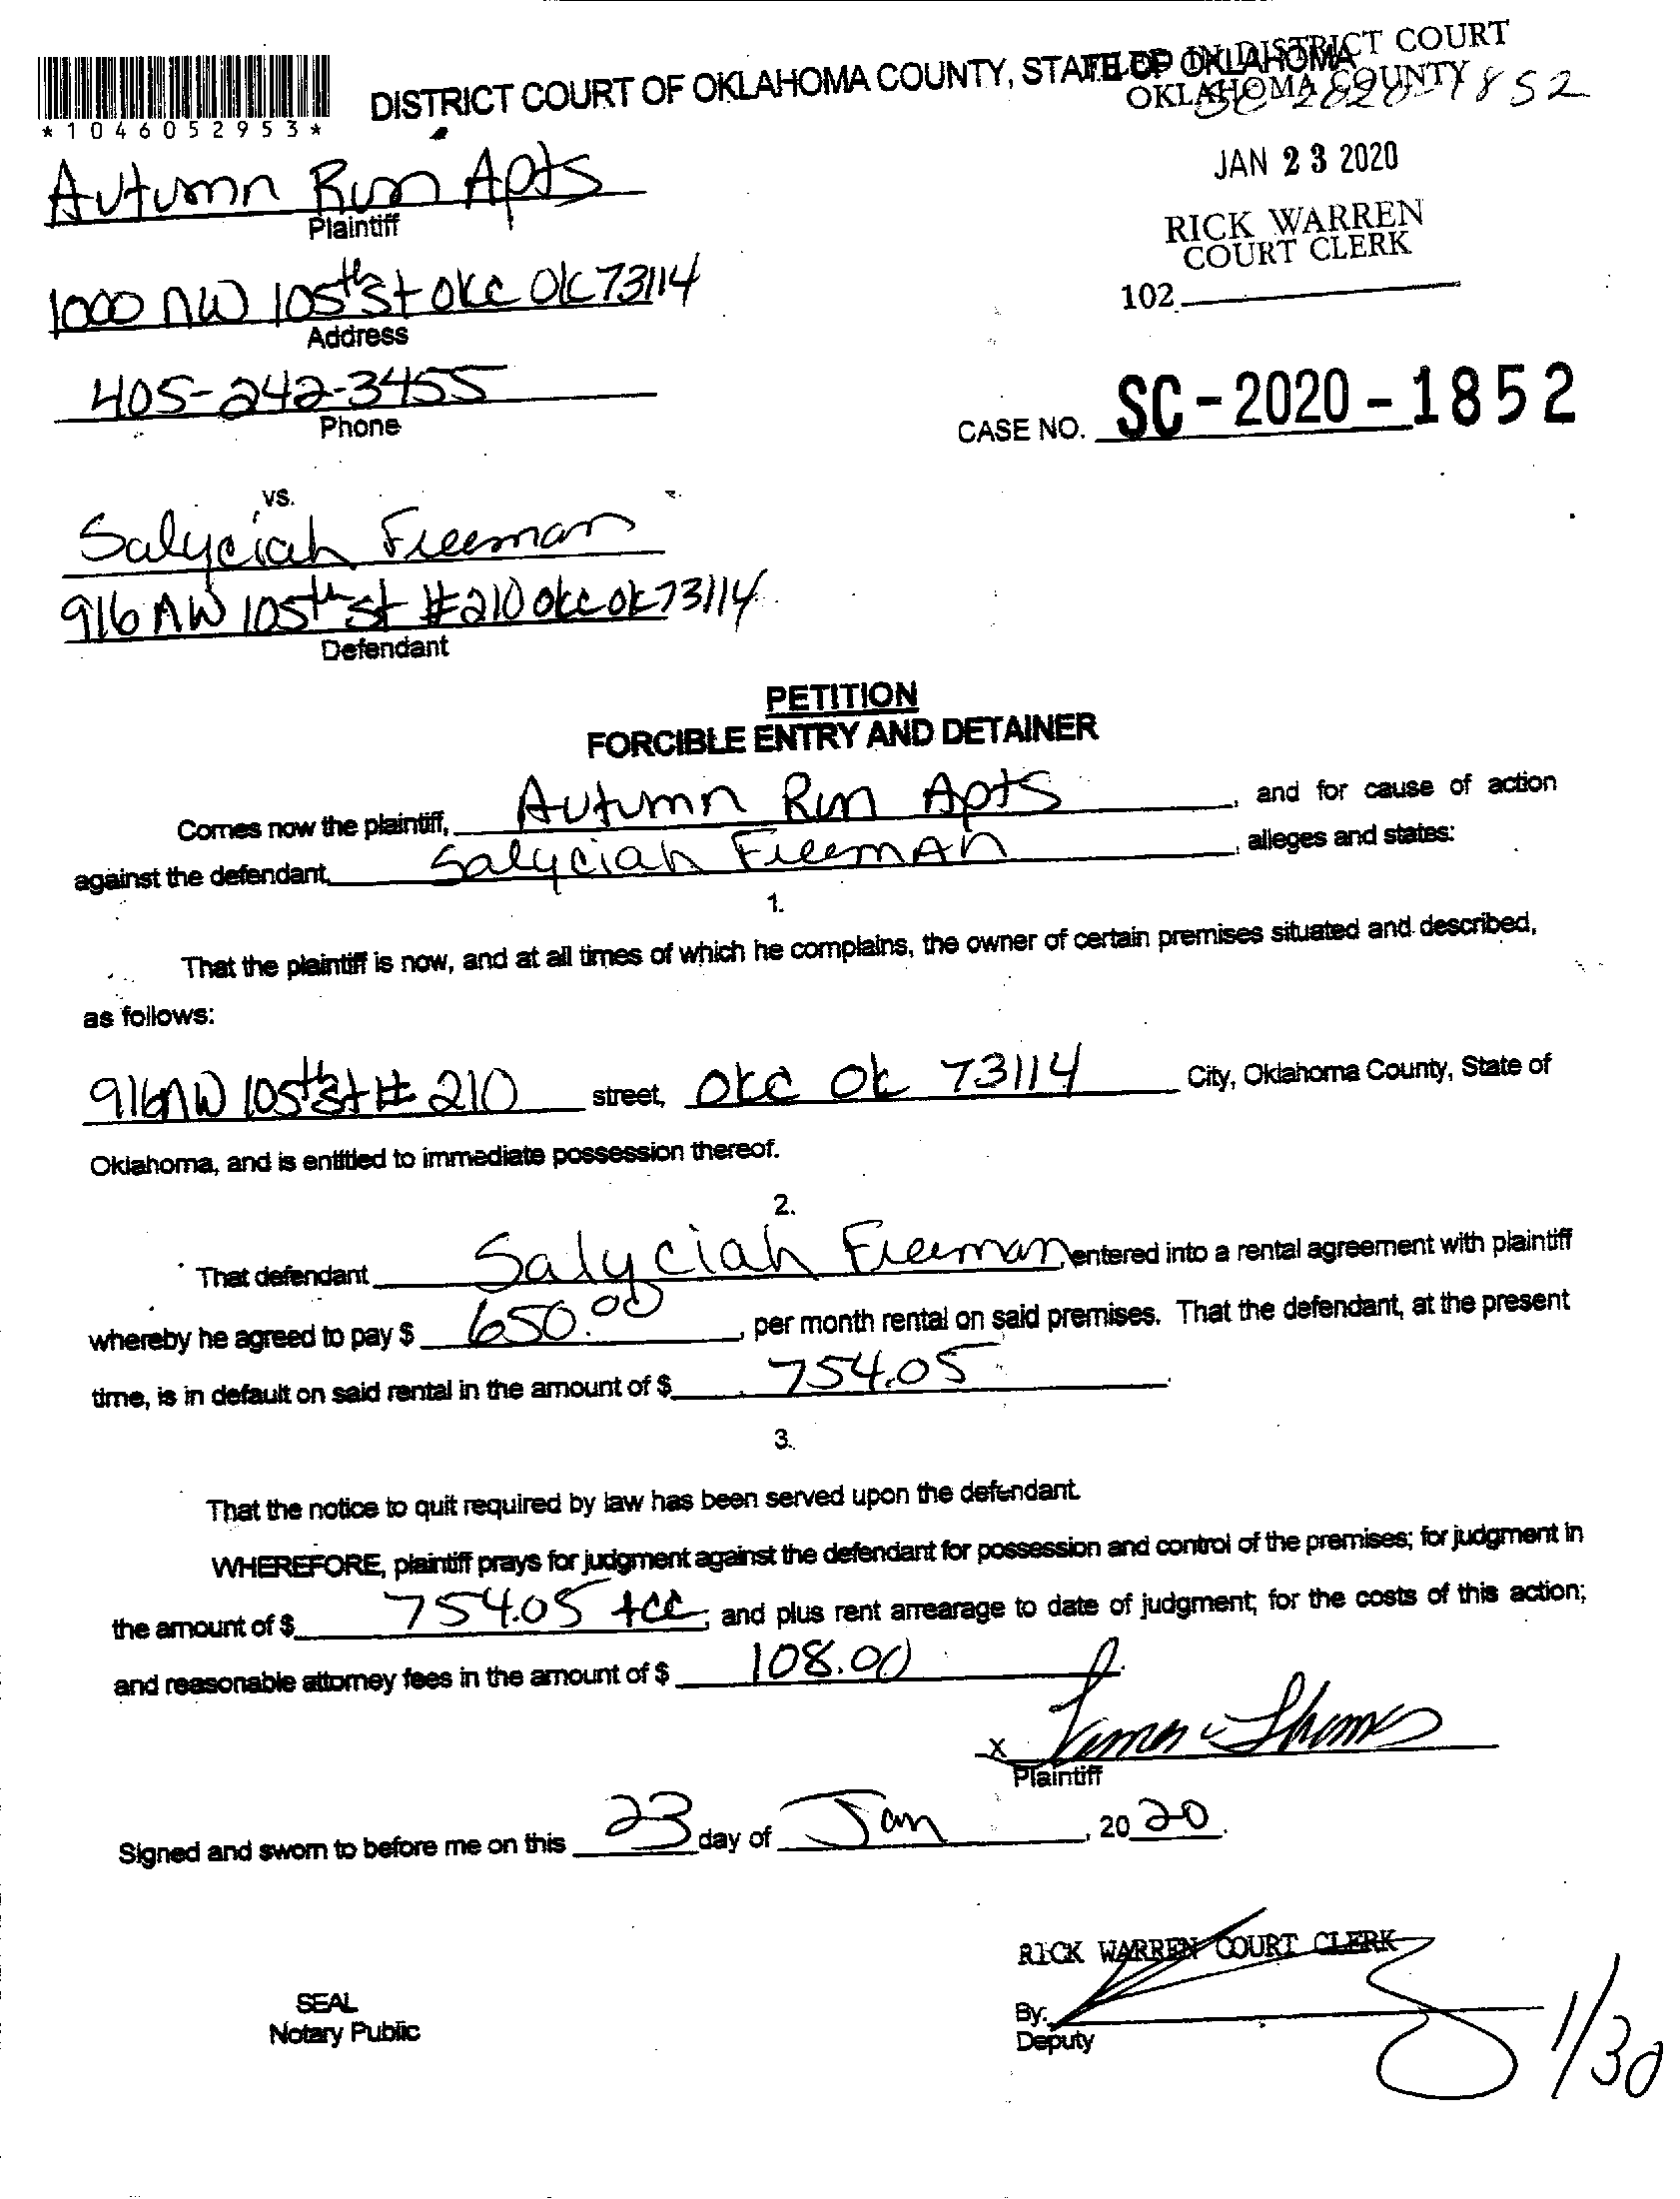 DISTRICT COURT OF OKLAHOMA COUNTY, STATE OF OKLAHOMA
FILED IN DISTRICT COURT
OKLAHOMA COUNTY
SC-2020-1852
*1046052953*
JAN 23 2020
RICK WARREN
COURT CLERK
102
Autumn Run Apts
Plaintiff
1000 NW 105th St OKC OK 73114
Address
405-242-3455
Phone
CASE NO. SC-2020-1852
vs.
Salyciah Freeman
916 NW 105th St #210 OKC OK 73114
Defendant
PETITION
FORCIBLE ENTRY AND DETAINER
Comes now the plaintiff, Autumn Run Apts, and for cause of action
against the defendant, Salyciah Freeman, alleges and states:
1.
That the plaintiff is now, and at all times of which he complains, the owner of certain premises situated and described,
as follows:
916 NW 105th St # 210 street, OKC OK 73114 City, Oklahoma County, State of
Oklahoma, and is entitled to immediate possession thereof.
2.
That defendant Salyciah Freeman, entered into a rental agreement with plaintiff
whereby he agreed to pay $ 650.00, per month rental on said premises. That the defendant, at the present
time, is in default on said rental in the amount of $ 754.05.
3.
That the notice to quit required by law has been served upon the defendant.
WHEREFORE, plaintiff prays for judgment against the defendant for possession and control of the premises; for judgment in
the amount of $ 754.05 +cc; and plus rent arrearage to date of judgment; for the costs of this action;
and reasonable attorney fees in the amount of $ 108.00.
X
Plaintiff
Signed and sworn to before me on this 23 day of Jan, 2020.
RICK WARREN COURT CLERK
SEAL
Notary Public
By:
Deputy
1/30